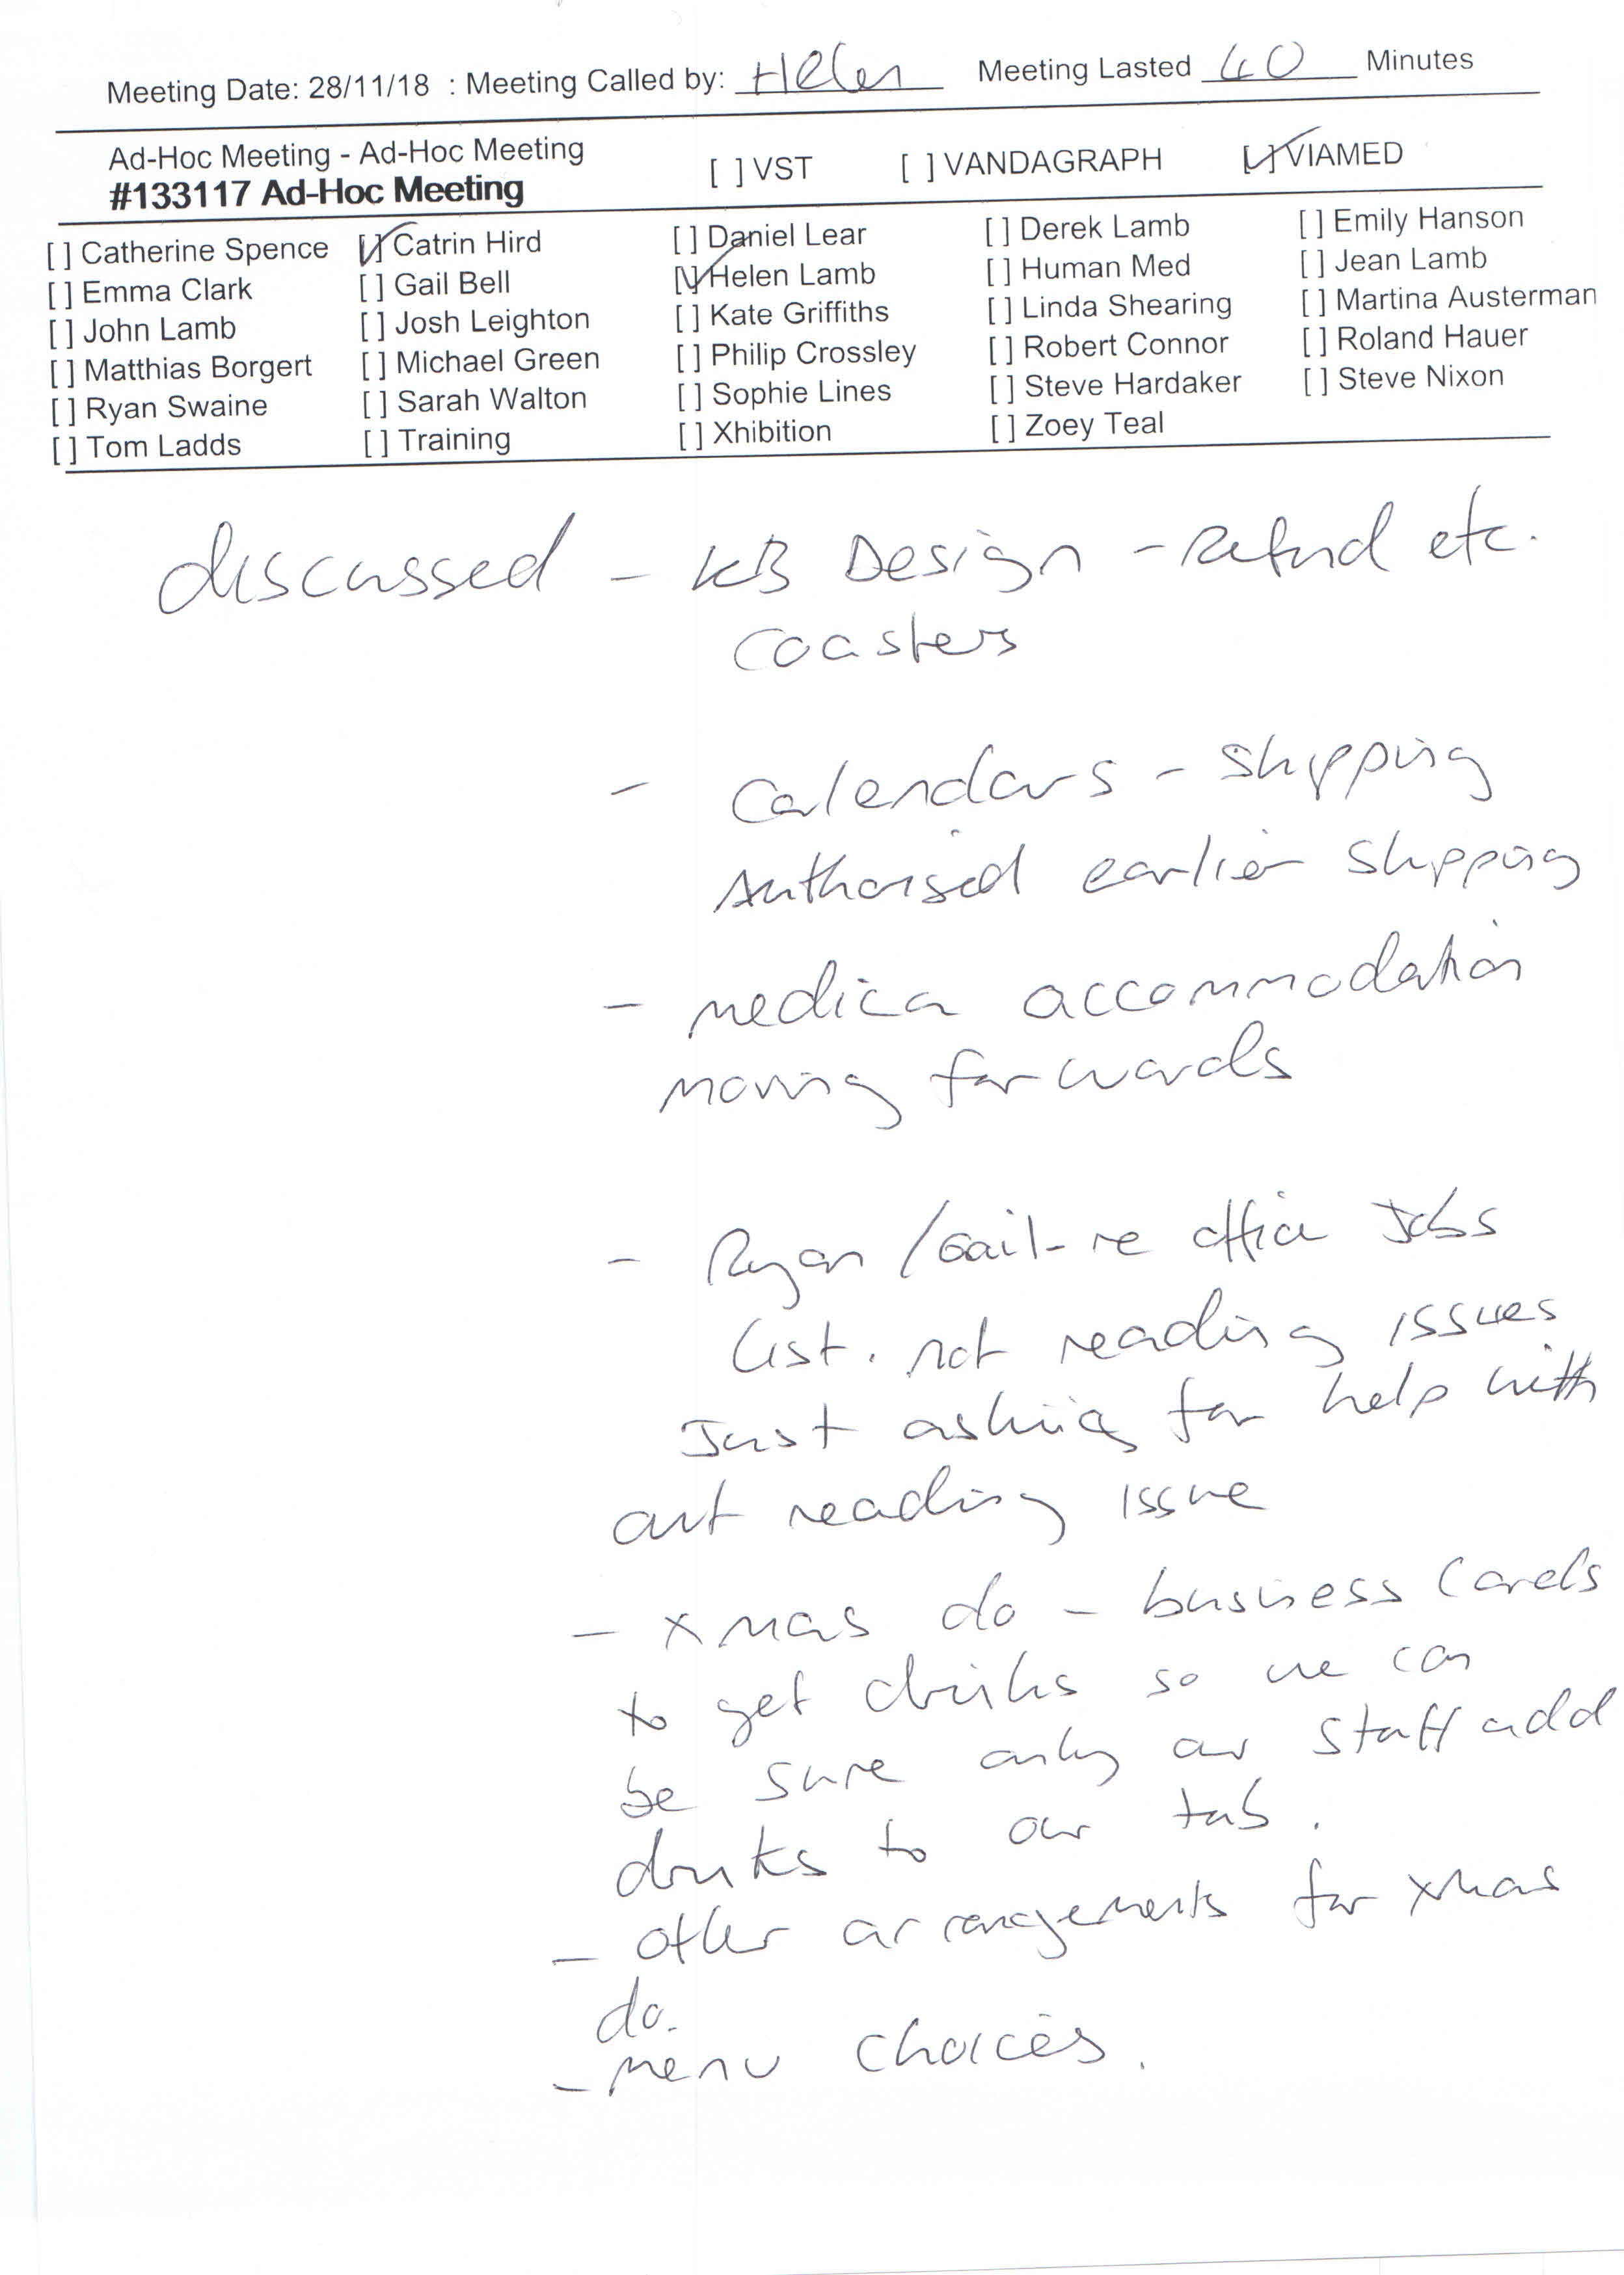 Meeting Date: 28/11/18 : Meeting Called by: Helen Meeting Lasted 40 Minutes
Ad-Hoc Meeting - Ad-Hoc Meeting [ ] VST [ ] VANDAGRAPH [✓] VIAMED
#133117 Ad-Hoc Meeting
[ ] Catherine Spence [✓] Catrin Hird [ ] Daniel Lear [ ] Derek Lamb [ ] Emily Hanson
[ ] Emma Clark [ ] Gail Bell [✓] Helen Lamb [ ] Human Med [ ] Jean Lamb
[ ] John Lamb [ ] Josh Leighton [ ] Kate Griffiths [ ] Linda Shearing [ ] Martina Austerman
[ ] Matthias Borgert [ ] Michael Green [ ] Philip Crossley [ ] Robert Connor [ ] Roland Hauer
[ ] Ryan Swaine [ ] Sarah Walton [ ] Sophie Lines [ ] Steve Hardaker [ ] Steve Nixon
[ ] Tom Ladds [ ] Training [ ] Xhibition [ ] Zoey Teal
discussed - KB Design - Refund etc.
Coasters
- Calendars - Shipping
Authorised earlier Shipping
- medica accommodation
moving forwards
- Ryan / Gail - re office Jobs
list. not reading issues
Just asking for help with
out reading issue
- xmas do - business Cards
to get drinks so we can
be sure only our staff add
drinks to our tab.
- other arrangements for xmas
do.
- menu choices.